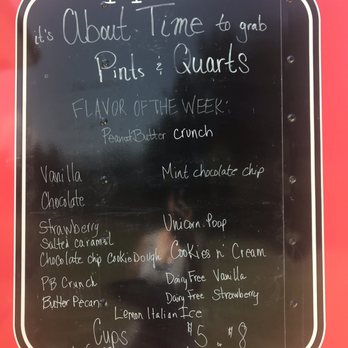 it's About Time to grab
Pints & Quarts
FLAVOR OF THE WEEK:
Peanut Butter crunch
Vanilla
Mint chocolate chip
Chocolate
Strawberry
Unicorn Poop
Salted caramel
Chocolate chip Cookie Dough
Cookies n' Cream
PB Crunch
Dairy Free Vanilla
Butter Pecan
Dairy Free Strawberry
Lemon Italian Ice
Cups
$5 or $8